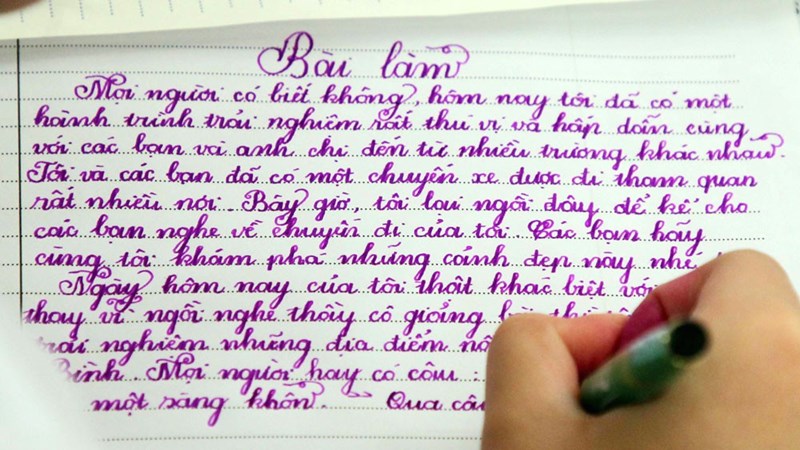 Bài làm
Mọi người có biết không, hôm nay tôi đã có một
hành trình trải nghiệm rất thú vị và hấp dẫn cùng
với các bạn và anh chị đến từ nhiều trường khác nhau.
Tôi và các bạn đã có một chuyến xe được đi tham quan
rất nhiều nơi. Bây giờ, tôi lại ngồi đây để kể cho
các bạn nghe về chuyến đi của tôi. Các bạn hãy
cùng tôi khám phá những cảnh đẹp này nhé
Ngày hôm nay của tôi thật khác biệt với
thay vì ngồi nghe thầy cô giảng bài
trải nghiệm những địa điểm
Bình. Mọi người hay có câu :
một sàng khôn. " Qua câu